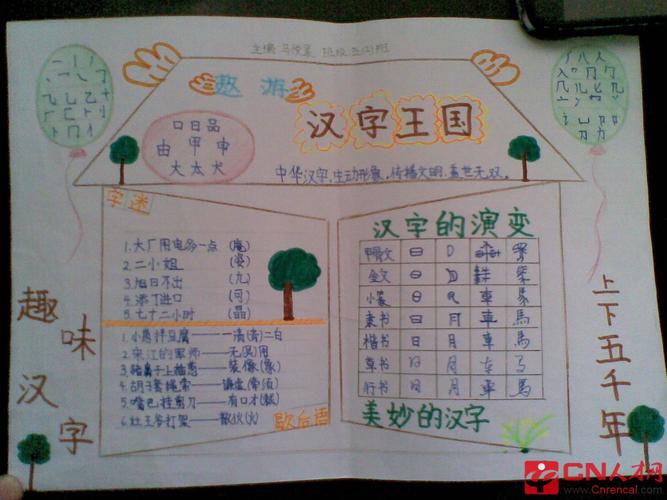 主编 马俊 班级:五(2)班
遨游
汉字王国
口日品
由甲申
大太犬
中华汉字,生动形象,传播文明,盖世无双。
字迷
1.大厂用电多一点 (庵)
2.二小姐 (姿)
3.旭日不出 (九)
4.添丁进口 (可)
5.七十二小时 (晶)
1.小葱拌豆腐——一清(青)二白
2.宋江的军师——无(吴)用
3.猪鼻子上插葱——装像(象)
4.胡子套绳索——谦虚(牵须)
5.嘴巴挂剪刀——有口才(裁)
6.灶王爷打架——散伙(火)
歇后语
汉字的演变
甲骨文 日
金文 日
小篆 日 車
隶书 日 月 車 馬
楷书 日 月 車 馬
草书 日 月
行书 日 月 車 馬
美妙的汉字
趣味汉字
上下五千年
CN人才网
Cnrencai.com